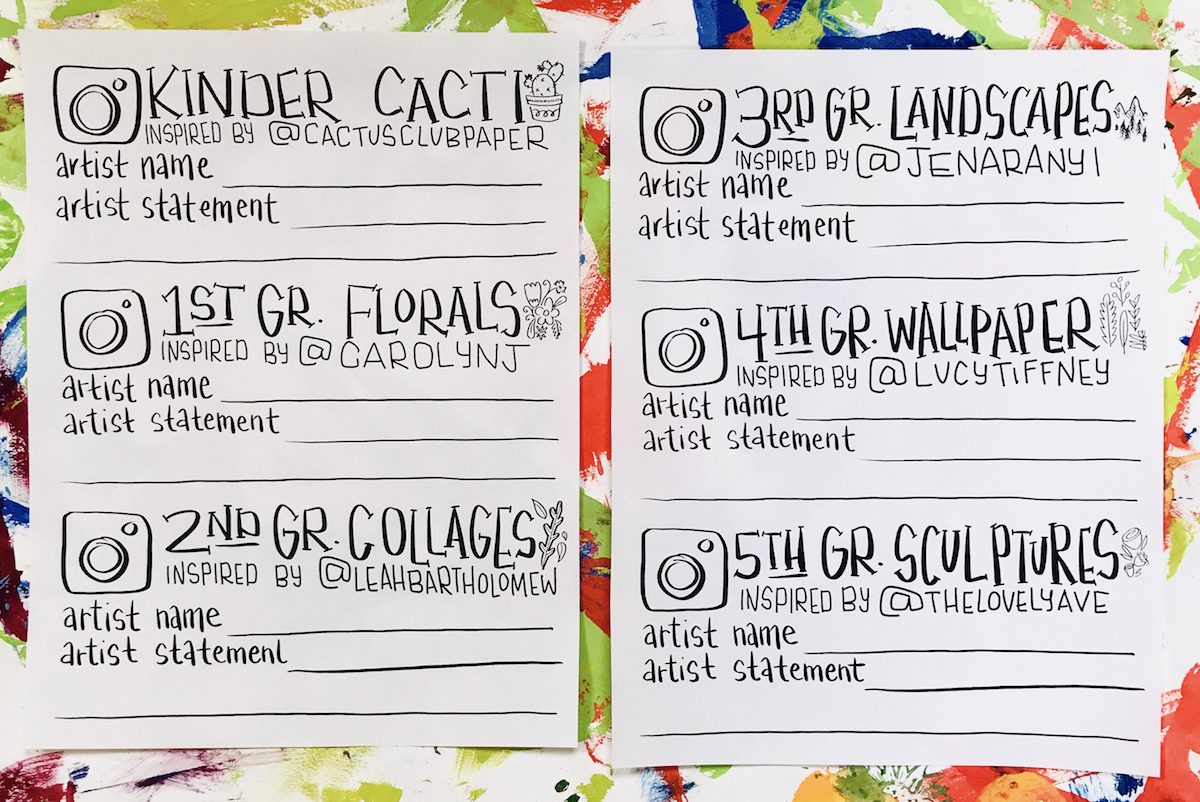 KINDER CACTI
INSPIRED BY @CACTUSCLUBPAPER
artist name
artist statement
1ST GR. FLORALS
INSPIRED BY @CAROLYNJ
artist name
artist statement
2ND GR. COLLAGES
INSPIRED BY @LEAHBARTHOLOMEW
artist name
artist statement
3RD GR. LANDSCAPES
INSPIRED BY @JENARANYI
artist name
artist statement
4TH GR. WALLPAPER
INSPIRED BY @LUCYTiFFNEY
artist name
artist statement
5TH GR. SCULPTURES
INSPIRED BY @THELOVELYAVE
artist name
artist statement